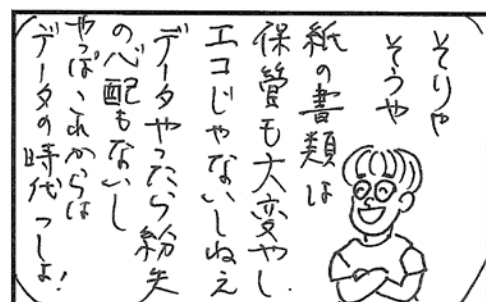 そりゃ
そうや
紙の書類は
保管も大変やし
エコじゃないしねえ
データやったら紛失
の心配もないし
やっぱこれからは
データの時代っしょ！